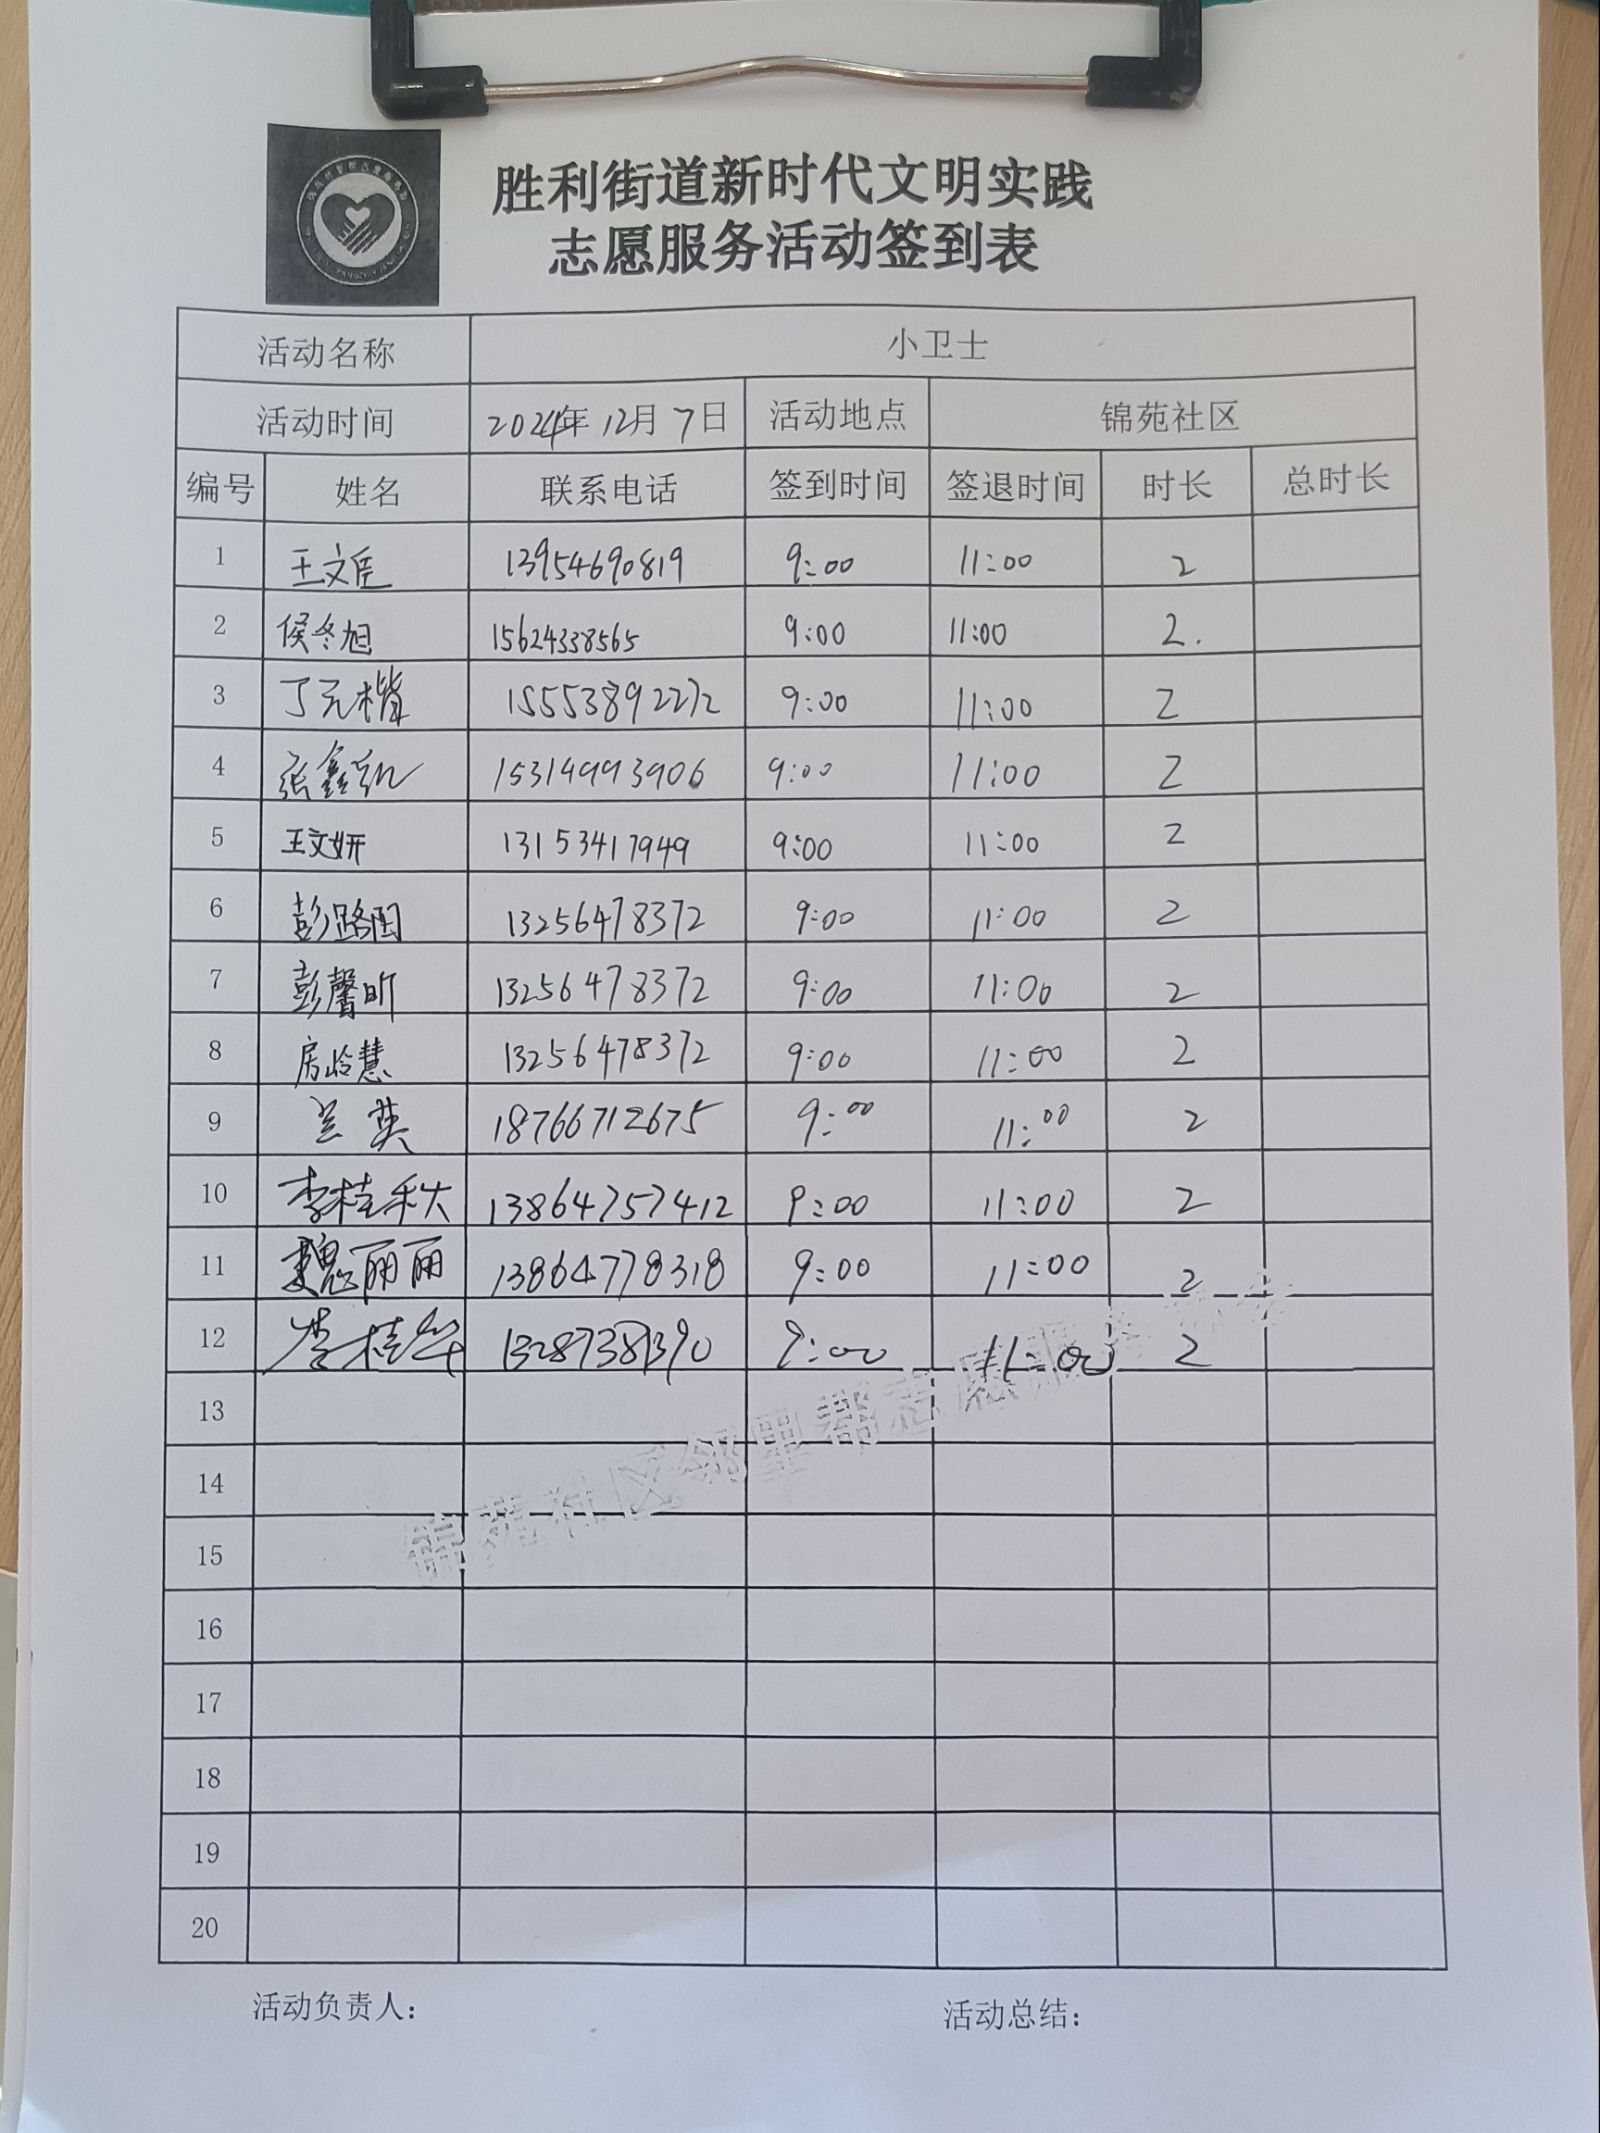 胜利街道新时代文明实践
志愿服务活动签到表
活动名称 小卫士
活动时间 2024年12月7日 活动地点 锦苑社区
编号 姓名 联系电话 签到时间 签退时间 时长 总时长
1 王文 13954690819 9:00 11:00 2
2 侯冬旭 15624338565 9:00 11:00 2.
3 丁元楷 15553892272 9:00 11:00 2
4 张鑫凯 15314993906 9:00 11:00 2
5 王文妍 13153417949 9:00 11:00 2
6 彭路 13256478372 9:00 11:00 2
7 彭馨昕 13256478372 9:00 11:00 2
8 房岭慧 13256478372 9:00 11:00 2
9 兰英 18766712675 9:00 11:00 2
10 李桂秋 13864757412 9:00 11:00 2
11 魏丽丽 13864778318 9:00 11:00 2
12 李桂华 9:00 11:00 2
13
14
15
16
17
18
19
20
锦苑社区邻里帮志愿服务
活动负责人: 活动总结: